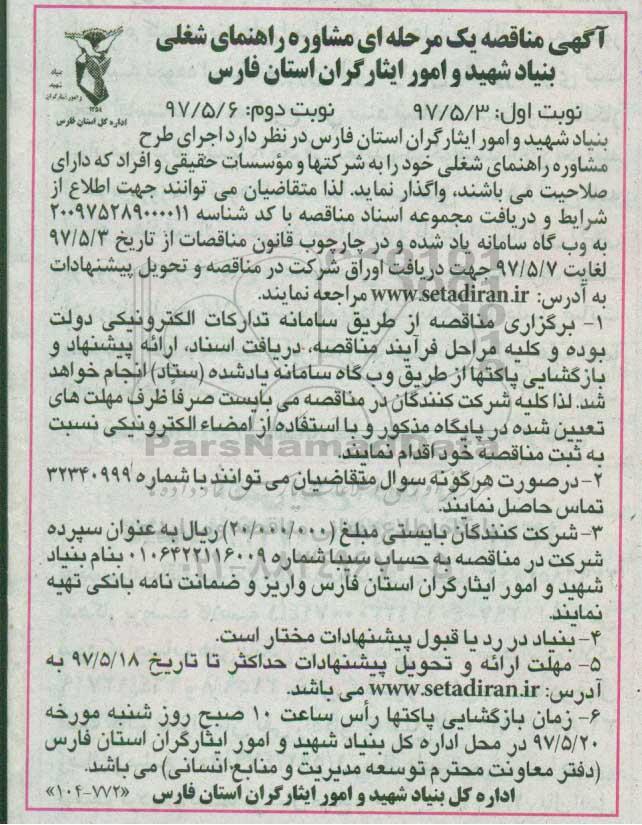 آگهی مناقصه یک مرحله ای مشاوره راهنمای شغلی
بنیاد شهید و امور ایثارگران استان فارس
بنیاد
شهید
و امور ایثارگران
۱۳۵۸
اداره کل استان فارس
نوبت اول: ۹۷/۵/۳ نوبت دوم: ۹۷/۵/۶
بنیاد شهید و امور ایثارگران استان فارس در نظر دارد اجرای طرح
مشاوره راهنمای شغلی خود را به شرکتها و مؤسسات حقیقی و افراد که دارای
صلاحیت می باشند، واگذار نماید. لذا متقاضیان می توانند جهت اطلاع از
شرایط و دریافت مجموعه اسناد مناقصه با کد شناسه ۲۰۰۹۷۵۲۸۹۰۰۰۰۱۱
به وب گاه سامانه یاد شده و در چارچوب قانون مناقصات از تاریخ ۹۷/۵/۳
لغایت ۹۷/۵/۷ جهت دریافت اوراق شرکت در مناقصه و تحویل پیشنهادات
به آدرس: www.setadiran.ir مراجعه نمایند.
۱- برگزاری مناقصه از طریق سامانه تدارکات الکترونیکی دولت
بوده و کلیه مراحل فرآیند مناقصه، دریافت اسناد، ارائه پیشنهاد و
بازگشایی پاکتها از طریق وب گاه سامانه یادشده (ستاد) انجام خواهد
شد. لذا کلیه شرکت کنندگان در مناقصه می بایست صرفاً ظرف مهلت های
تعیین شده در پایگاه مذکور و با استفاده از امضاء الکترونیکی نسبت
به ثبت مناقصه خود اقدام نمایند.
ParsNamadData
۲- در صورت هرگونه سوال متقاضیان می توانند با شماره ۳۲۳۴۰۹۹۹
تماس حاصل نمایند.
۳- شرکت کنندگان بایستی مبلغ (۲۰/۰۰۰/۰۰۰) ریال به عنوان سپرده
شرکت در مناقصه به حساب سیبا شماره ۰۱۰۶۴۲۲۱۱۶۰۰۹ بنام بنیاد
شهید و امور ایثارگران استان فارس واریز و ضمانت نامه بانکی تهیه
نمایند.
۴- بنیاد در رد یا قبول پیشنهادات مختار است.
۵- مهلت ارائه و تحویل پیشنهادات حداکثر تا تاریخ ۹۷/۵/۱۸ به
آدرس: www.setadiran.ir می باشد.
۶- زمان بازگشایی پاکتها رأس ساعت ۱۰ صبح روز شنبه مورخه
۹۷/۵/۲۰ در محل اداره کل بنیاد شهید و امور ایثارگران استان فارس
(دفتر معاونت محترم توسعه مدیریت و منابع انسانی) می باشد.
اداره کل بنیاد شهید و امور ایثارگران استان فارس «۱۰۴-۷۷۲»